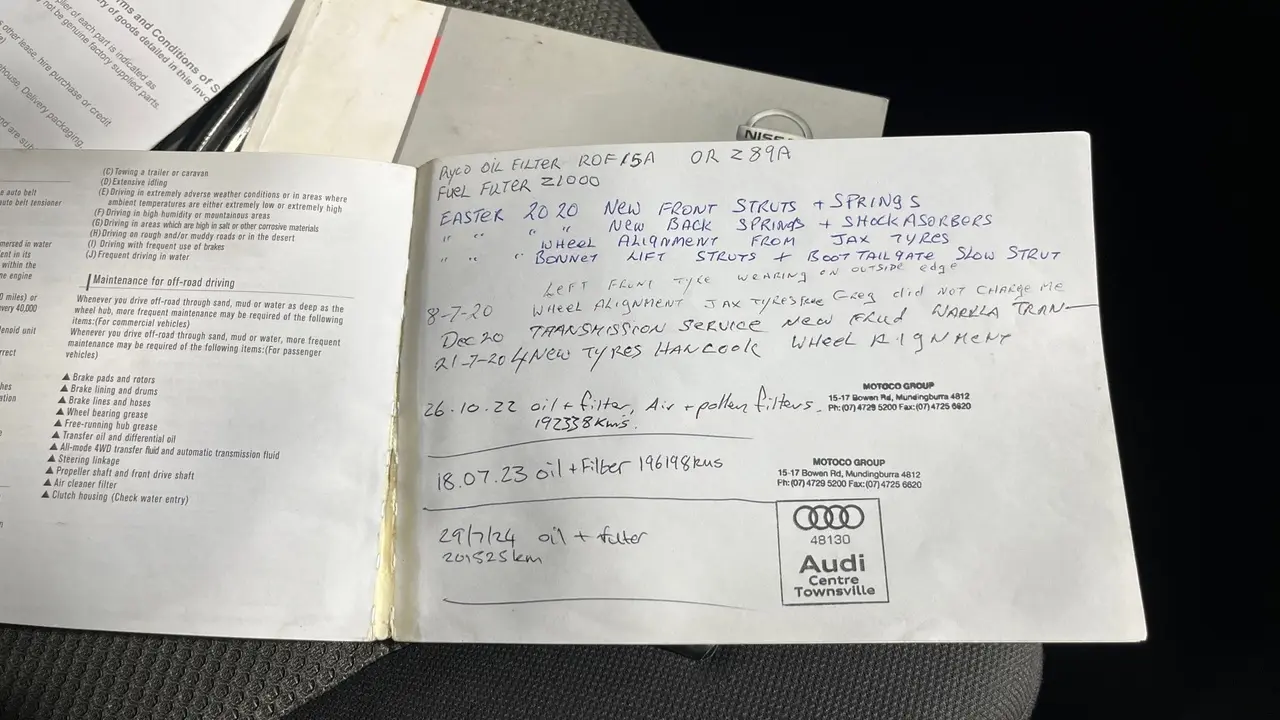 rms and Conditions of S
ry of goods detailed in this invo
plier of each part is indicated as
not be genuine factory supplied parts.
other lease, hire purchase or credit
house, Delivery packaging,
and are sub
NISSA
e auto belt
auto belt tensioner
mersed in water
ent in its
within the
ne engine
0 miles) or
very 40,000
lenoid unit
rrect
hes
ation
(C) Towing a trailer or caravan
(D) Extensive idling
(E) Driving in extremely adverse weather conditions or in areas where
ambient temperatures are either extremely low or extremely high
(F) Driving in high humidity or mountainous areas
(G) Driving in areas which are high in salt or other corrosive materials
(H) Driving on rough and/or muddy roads or in the desert
(I) Driving with frequent use of brakes
(J) Frequent driving in water
Maintenance for off-road driving
Whenever you drive off-road through sand, mud or water as deep as the
wheel hub, more frequent maintenance may be required of the following
items:(For commercial vehicles)
Whenever you drive off-road through sand, mud or water, more frequent
maintenance may be required of the following items:(For passenger
vehicles)
▲ Brake pads and rotors
▲ Brake lining and drums
▲ Brake lines and hoses
▲ Wheel bearing grease
▲ Free-running hub grease
▲ Transfer oil and differential oil
▲ All-mode 4WD transfer fluid and automatic transmission fluid
▲ Steering linkage
▲ Propeller shaft and front drive shaft
▲ Air cleaner filter
▲ Clutch housing (Check water entry)
RYCO OIL FILTER OR Z89A
FUEL FILTER Z1000
EASTER 2020 NEW FRONT STRUTS + SPRINGS
" " " " NEW BACK SPRINGS + SHOCK ASORBERS
WHEEL ALIGNMENT FROM JAX TYRES
" " " BONNET LIFT STRUTS + BOOT TAILGATE SLOW STRUT
LEFT FRONT TYRE WEARING ON OUTSIDE edge
8-7-20 WHEEL ALIGNMENT JAX TYRES FREE Greg did NOT CHARGE ME
Dec 20 TRANSMISSION SERVICE NEW FLUID TRAN
NEW TYRES HANCOOK WHEEL ALIGNMENT
26.10.22 oil + filter, Air + pollen filters.
192338kms.
MOTOCO GROUP
15-17 Bowen Rd, Mundingburra 4812
Ph:(07)4729 5200 Fax:(07)4725 6620
18.07.23 oil + Filter 196198kms
MOTOCO GROUP
15-17 Bowen Rd, Mundingburra 4812
Ph:(07)4729 5200 Fax:(07)4725 6620
29/7/24 oil + filter
201525km
48130
Audi
Centre
Townsville